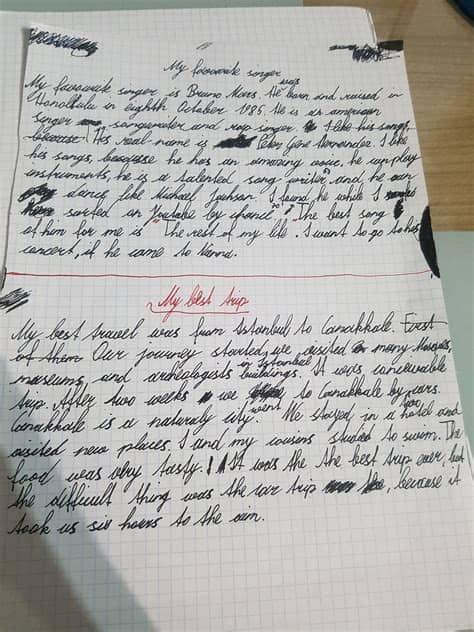 My favourite singer
My favourite singer is Bruno Mars. He was born and raised in
Honolulu in eighth October 1985. He is an american
singer songwriter and rap singer. I like his songs,
because His real name is Peter Gene Hernandez. I like
his songs, becausse he has an amazing voice. he can play
instruments, he is a talented song writer and he can
dance like Michael Jackson. I found he while I
sorted on Youtube by chance. The best song
of him for me is "The rest of my life. I want to go to his
concert, if he came to Vienna.
My best trip
My best travel was from Istanbul to Canakkale. First
of them Our journey started, we visited many Mosques,
museums, and archeologists in Istanbul buildings. It was
trip. After two weeks we went to Canakkale by cars.
Canakkale is a naturaly city. We stayed in a hotel and
visited new places. I and my cousins to swom. The
food was very tasty. It was the the best trip ever, but
the difficult thing was the car trip, because it
took us six hours to the aim.